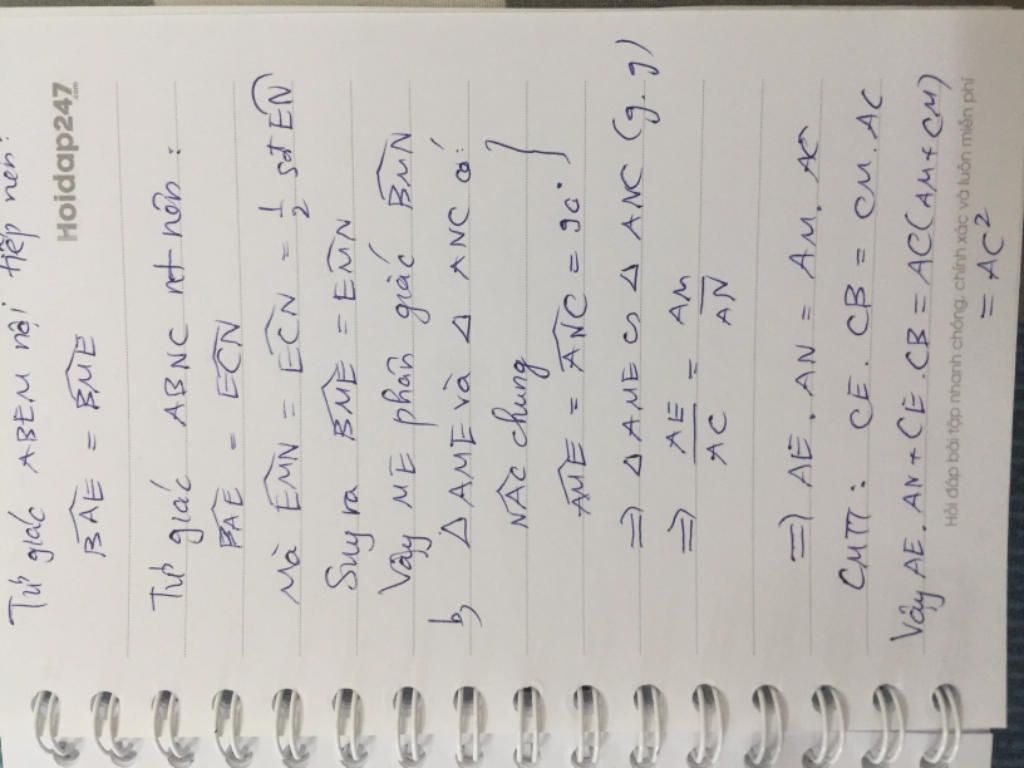 Hoidap247
.com
Tứ giác ABEM nội tiếp nên:
BAE = BME
Tứ giác ABNC nt nên:
BAE = ECN
Mà EMN = ECN = 1/2 sđ EN
Suy ra BME = EMN
Vậy ME phân giác BMN
b, Δ AME và Δ ANC có:
NAC chung }
AME = ANC = 90°
=> Δ AME ∽ Δ ANC (g.g)
=> AE/AC = AM/AN
=> AE. AN = AM. AC
CMTT: CE. CB = CM. AC
Vậy AE. AN + CE. CB = AC(AM+CM)
= AC²
Hỏi đáp bài tập nhanh chóng, chính xác và luôn miễn phí